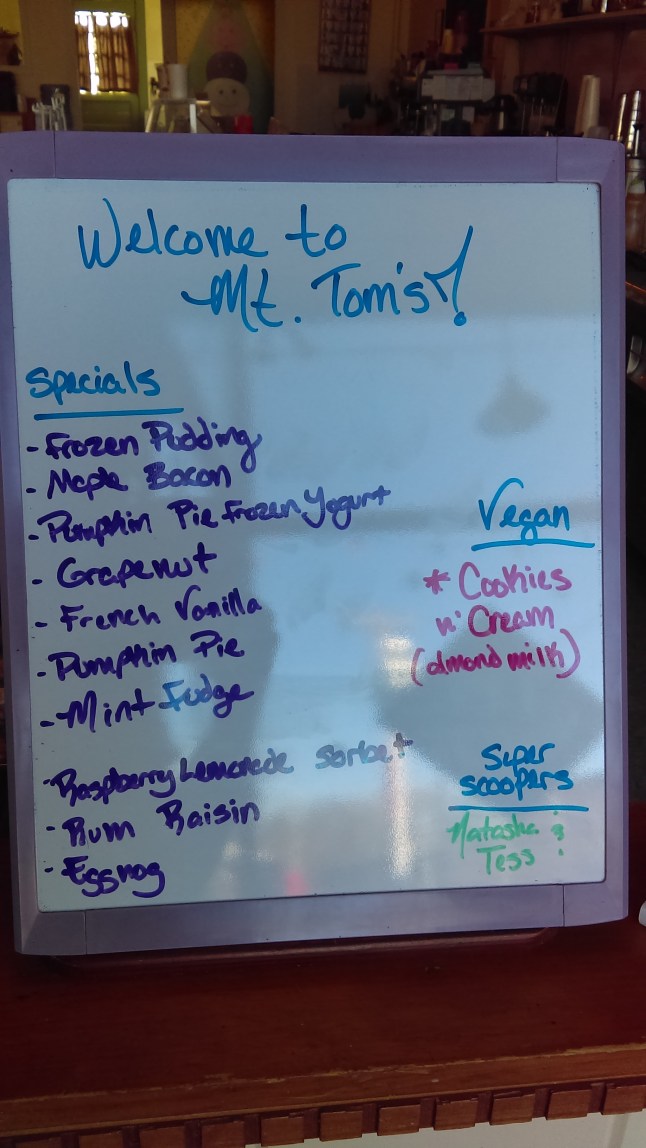 Welcome to
Mt. Tom's!
Specials
- Frozen Pudding
- Maple Bacon
- Pumpkin Pie Frozen Yogurt
- Grapenut
- French Vanilla
- Pumpkin Pie
- Mint Fudge
- Raspberry Lemonade Sorbet
- Rum Raisin
- Eggnog
Vegan
* Cookies
n' Cream
(almond milk)
Super
scoopers
Natasha &
Tess